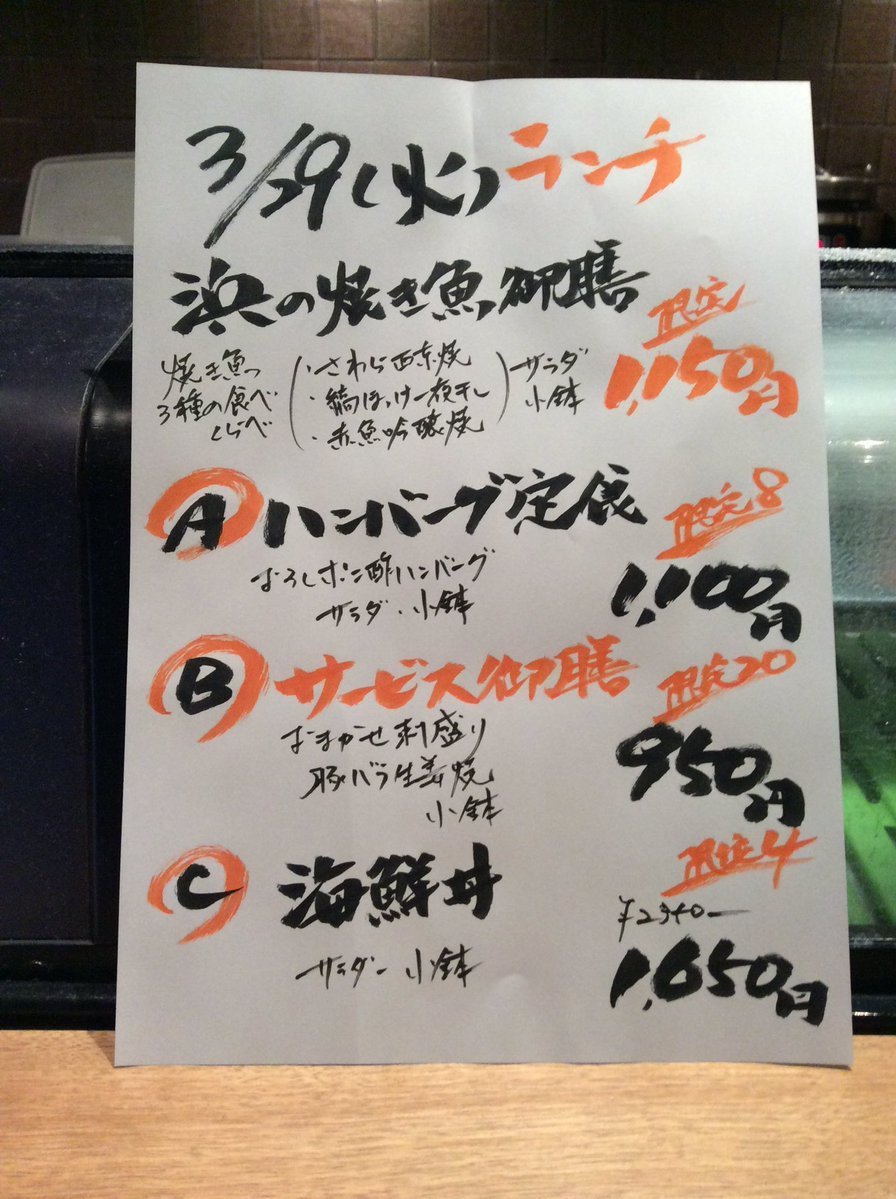 3/29(火)ランチ
浜の焼き魚御膳
限定
1,150円
焼き魚
3種の食べ
くらべ
・さわら西京焼
・縞ほっけ一夜干し
・赤魚吟醸焼
サラダ
小鉢
A ハンバーグ定食
限定8
おろしポン酢ハンバーグ
サラダ・小鉢
1,100円
B サービス御膳
限定20
おまかせ刺盛り
豚バラ生姜焼
小鉢
950円
C 海鮮丼
限定4
サラダー小鉢
¥2340ー
1,650円